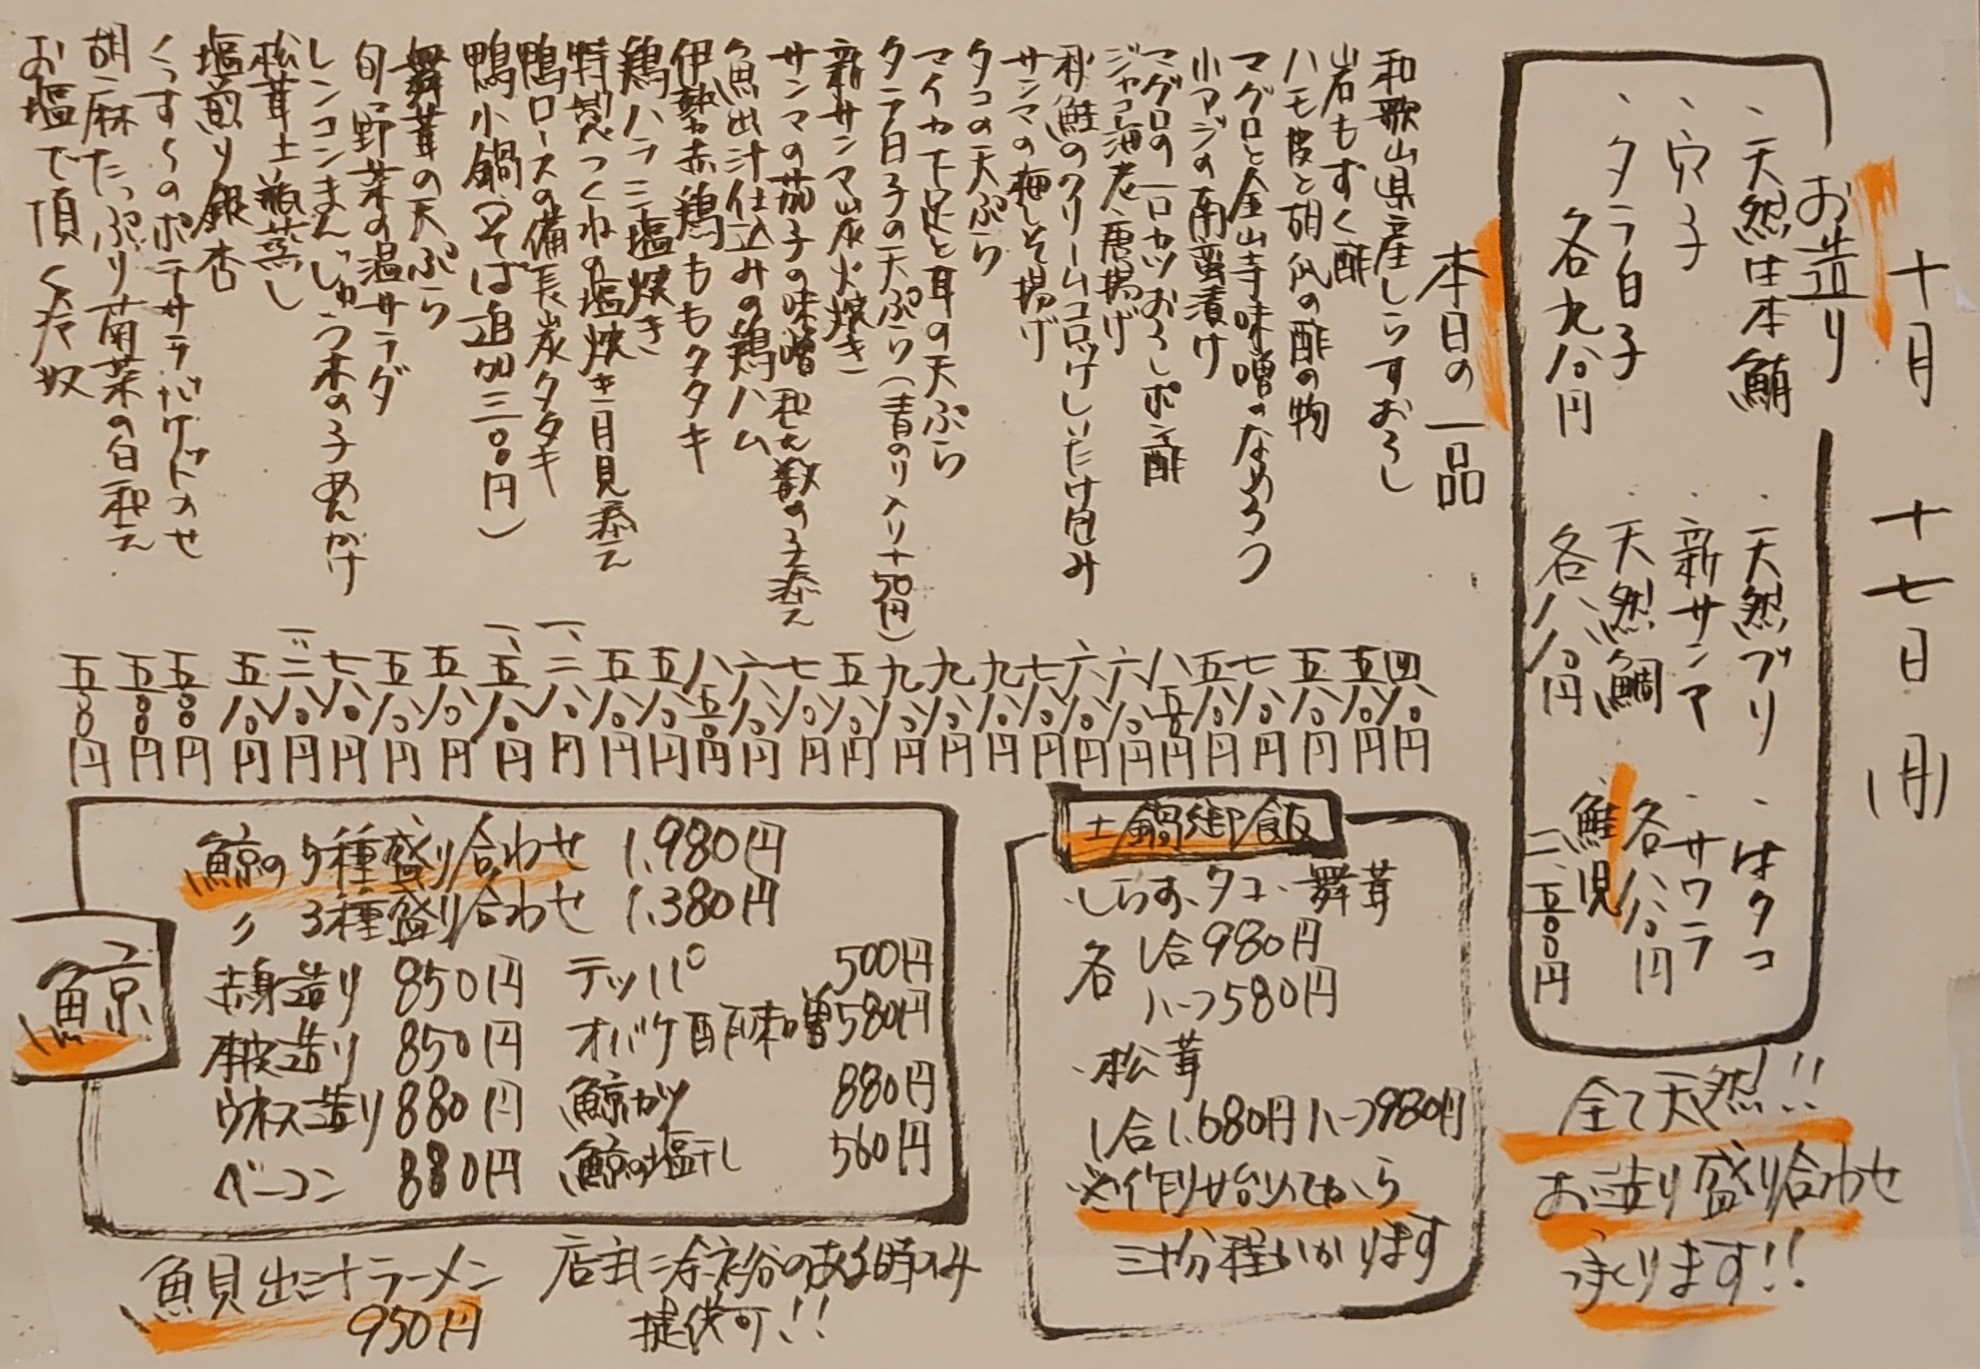 十月 十七日(月)
お造り
・天然生本鮪
・穴子
・タラ白子
各九八〇円
・天然ブリ
・新サンマ
・天然鯛
各八八〇円
・はタコ
・サワラ
各八八〇円
鮭児
二、五〇〇円
全て天然!!
お造り盛り合わせ
承ります!!
本日の一品
和歌山県産しらすおろし 四八〇円
岩もずく酢 五八〇円
ハモ皮と胡瓜の酢の物 五八〇円
マグロと金山寺味噌のなめろう 七八〇円
小アジの南蛮漬け 五八〇円
マグロの一口カツおろしポン酢 八五〇円
ジャコ海老唐揚げ 六八〇円
秋鮭のクリームコロッケしいたけ包み 六八〇円
サンマの梅しそ揚げ 七八〇円
タコの天ぷら 九八〇円
マイカ下足と耳の天ぷら 九八〇円
タラ白子の天ぷら(青のり入り十50円) 九八〇円
新サンマ炭火焼き 五八〇円
サンマの茄子の味噌和え数の子添え 七八〇円
魚出汁仕込みの鶏ハム 六八〇円
伊勢赤鶏ももタタキ 八五〇円
鶏ハラミ塩焼き 五八〇円
特製つくねの塩焼き月見添え 五八〇円
鴨ロースの備長炭タタキ 一、二八〇円
鴨小鍋(そば追加三三〇円) 一、五八〇円
舞茸の天ぷら 五八〇円
旬野菜の温サラダ 五八〇円
レンコンまんじゅう木の子あんかけ 七八〇円
松茸土瓶蒸し 一、二八〇円
塩煎り銀杏 五八〇円
くっすくのポテサラバゲットのせ 五〇〇円
胡麻たっぷり菊菜の白和え 五〇〇円
お塩で頂く冷奴 五〇〇円
土鍋御飯
・しらす、タコ、舞茸
各 1合980円
ハーフ580円
・松茸
1合1.680円ハーフ980円
※作り始めてから
三十分程かかります
鯨
鯨の5種盛り合わせ 1.980円
〃 3種盛り合わせ 1.380円
赤身造り 850円
本皮造り 850円
ウネス造り 880円
ベーコン 880円
テッパ 500円
オバケ酢味噌 580円
鯨カツ 880円
鯨の塩干し 560円
魚貝出汁ラーメン
950円
店主に余裕のある時のみ
提供可!!